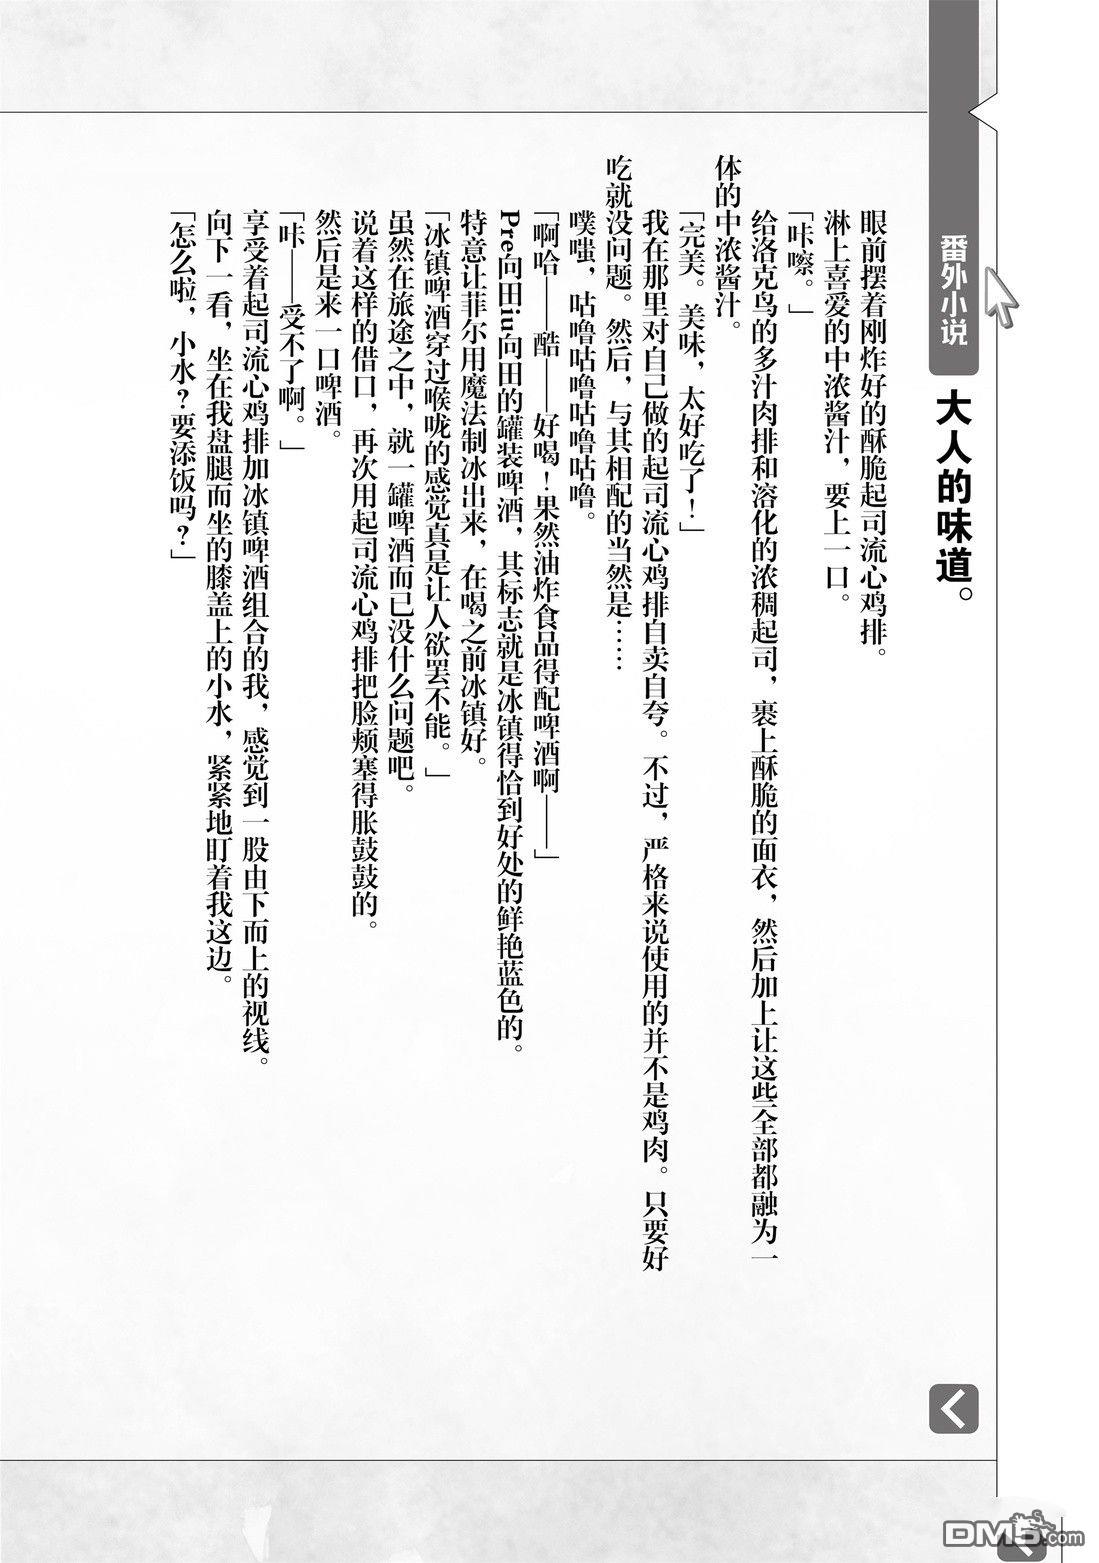 番外小说
大人的味道。
眼前摆着刚炸好的酥脆起司流心鸡排。
淋上喜爱的中浓酱汁，要上一口。
「咔嚓。」
给洛克鸟的多汁肉排和溶化的浓稠起司，裹上酥脆的面衣，然后加上让这些全部都融为一
体的中浓酱汁。
「完美。美味，太好吃了！」
我在那里对自己做的起司流心鸡排自卖自夸。不过，严格来说使用的并不是鸡肉。只要好
吃就没问题。然后，与其相配的当然是……
噗嗤，咕噜咕噜咕噜咕噜。
「啊哈——酷——好喝！果然油炸食品得配啤酒啊——」
Pre向田iu向田的罐装啤酒，其标志就是冰镇得恰到好处的鲜艳蓝色的。
特意让菲尔用魔法制冰出来，在喝之前冰镇好。
「冰镇啤酒穿过喉咙的感觉真是让人欲罢不能。」
虽然在旅途之中，就一罐啤酒而已没什么问题吧。
说着这样的借口，再次用起司流心鸡排把脸颊塞得胀鼓鼓的。
然后是来一口啤酒。
「咔——受不了啊。」
享受着起司流心鸡排加冰镇啤酒组合的我，感觉到一股由下而上的视线。
向下一看，坐在我盘腿而坐的膝盖上的小水，紧紧地盯着我这边。
「怎么啦，小水？要添饭吗？」
DM5.com